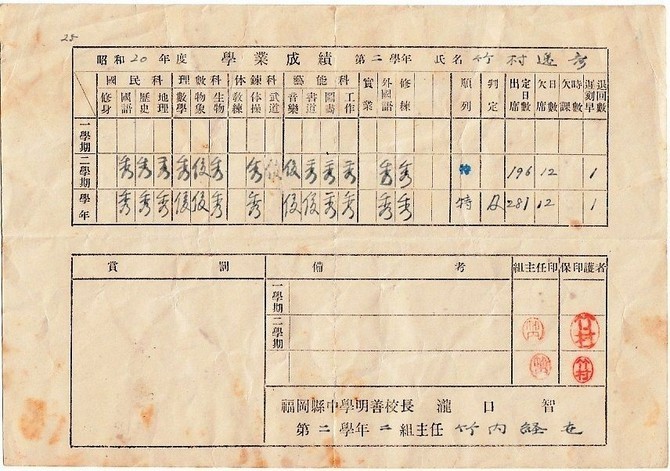 25
昭和20年度 學業成績 第二學年 氏名 竹村
國民科 理數科 体錬科 藝能科 實業 外國語 修練 順列 判定 出定日席數 欠日席數 欠時課數 遲刻早退回數
修身 國語 歷史 地理 數學 物象 生物 教練 体操 武道 音樂 書道 圖畵 工作
一學期
二學期 秀 秀 秀 秀 優 秀 秀 優 優 秀 秀 秀 秀 秀 特 196 12 1
學年 秀 秀 秀 優 優 秀 秀 優 優 秀 秀 秀 秀 特 及 281 12 1
賞罰 備考 組主任印 保護者印
一學期
二學期 竹内 竹村
竹内 竹村
福岡縣中學明善校長 瀧口智
第二學年二組主任 竹内